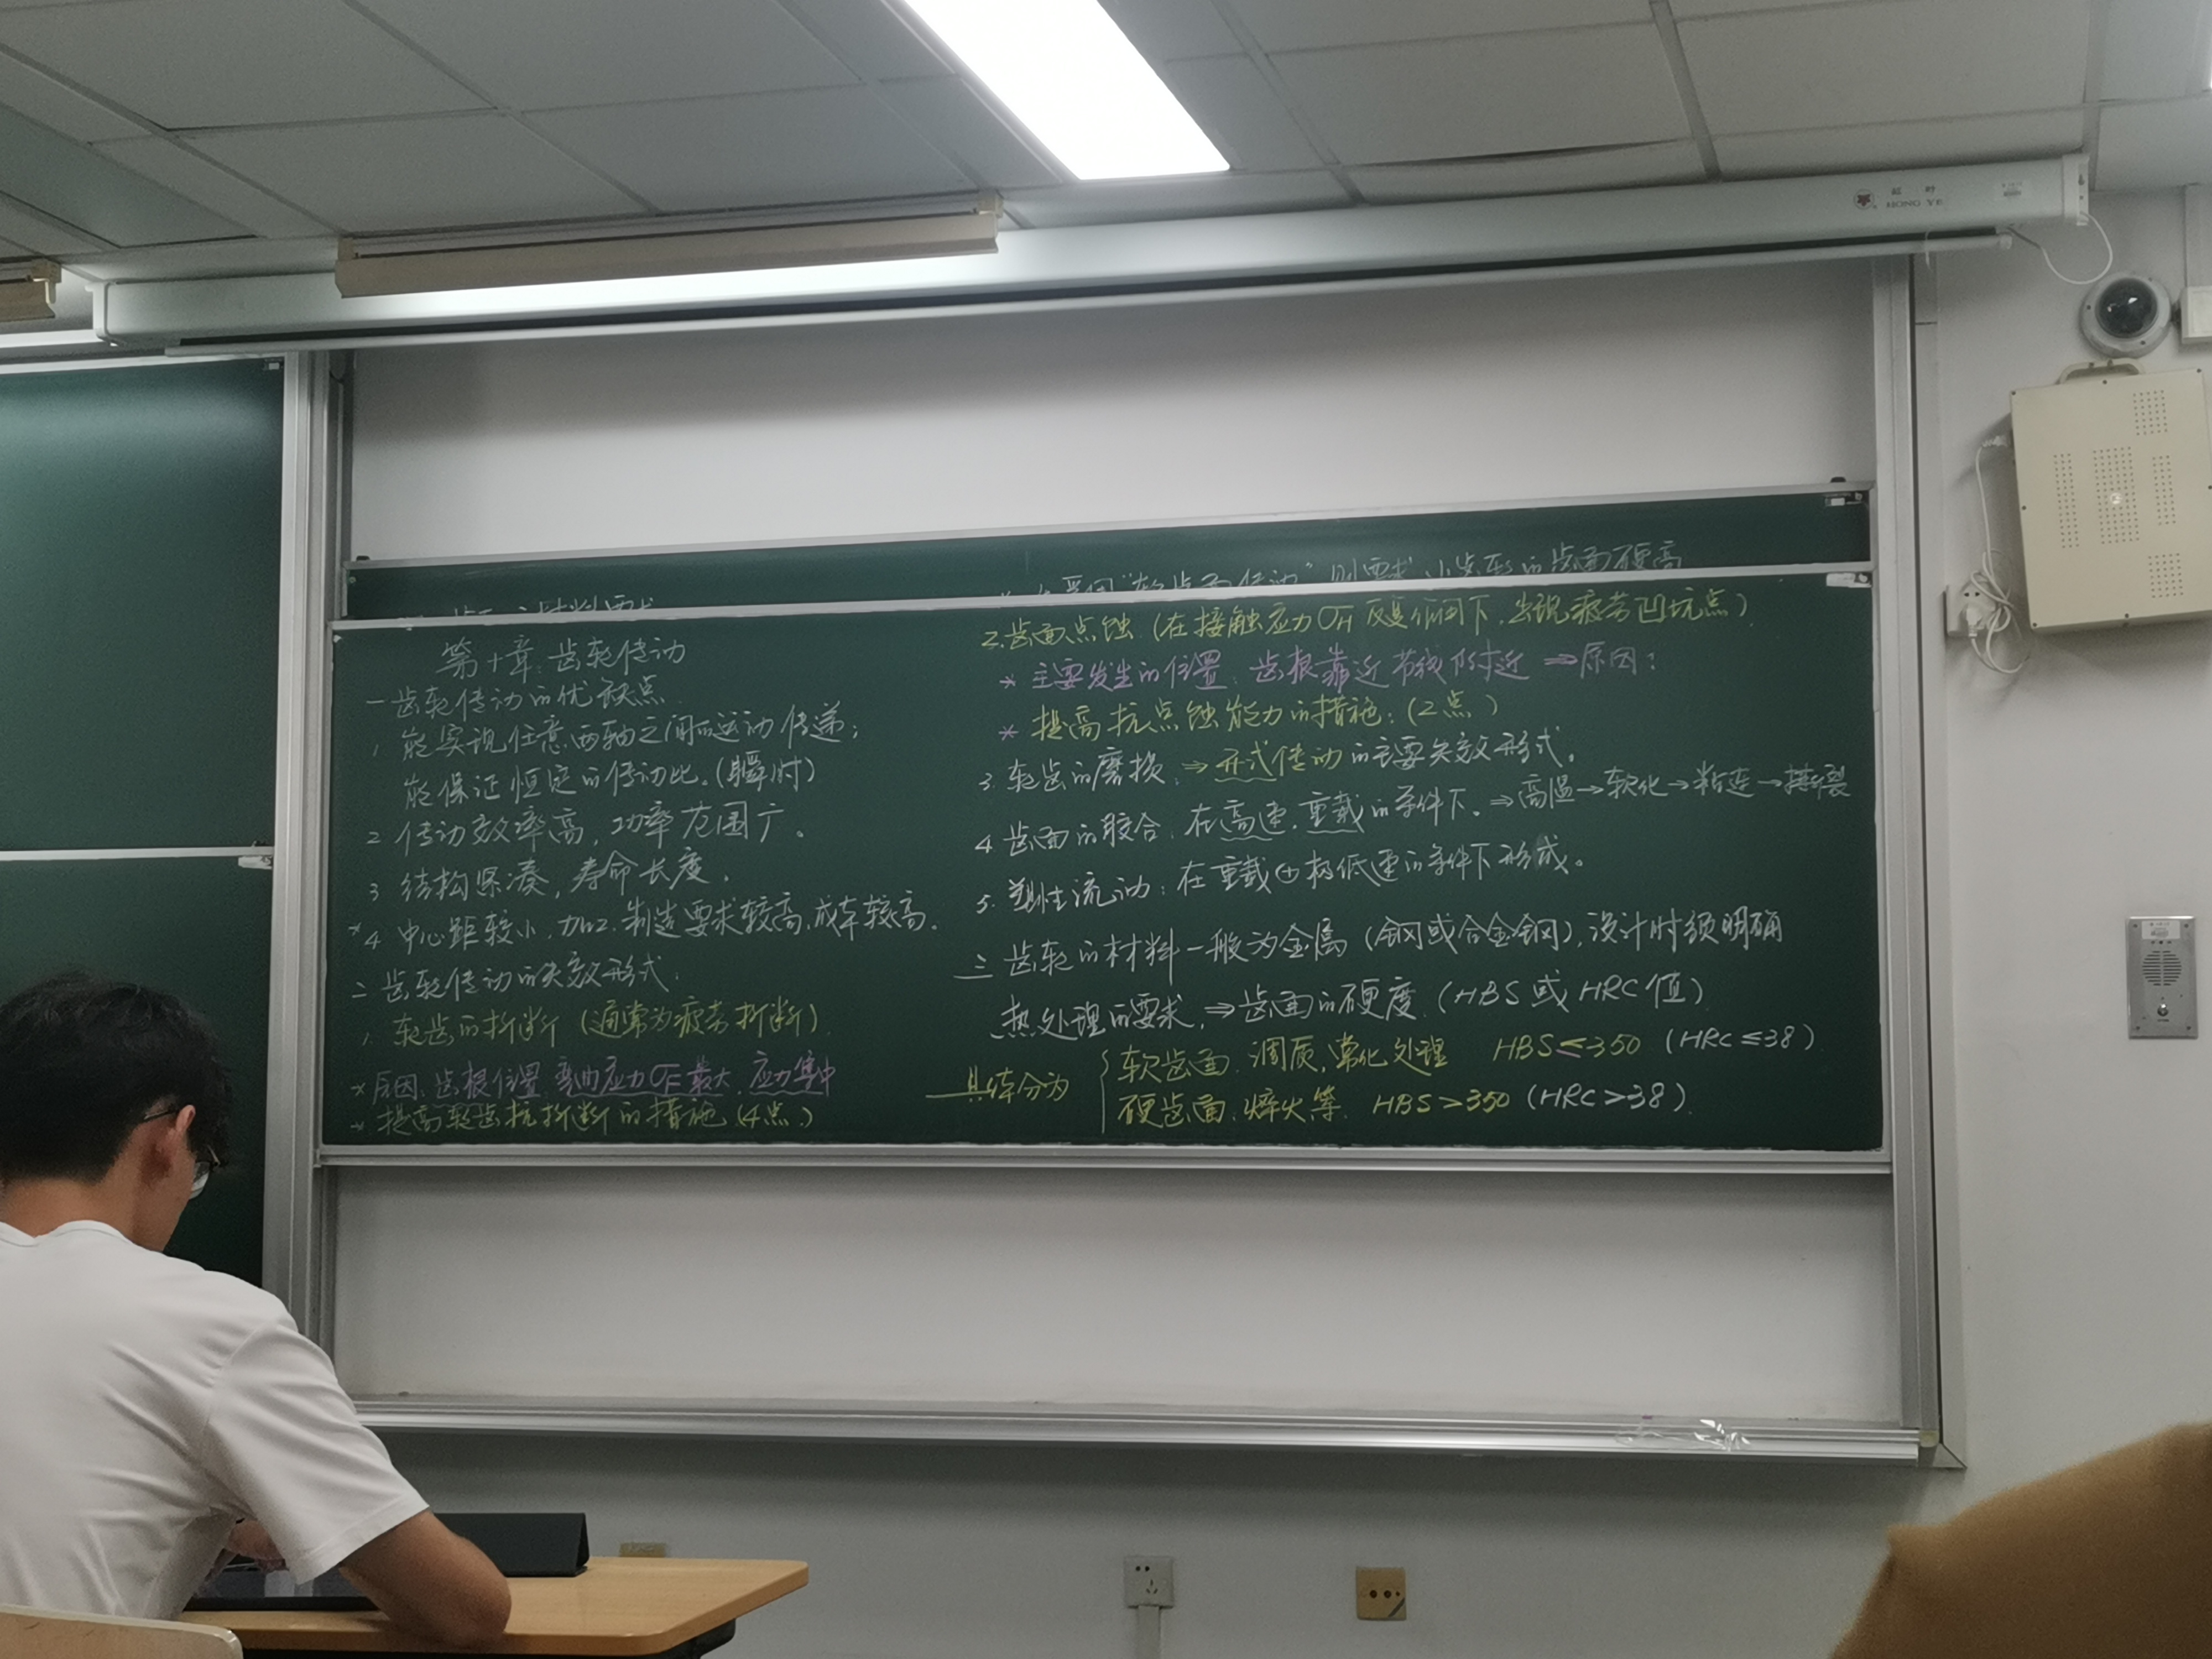 红叶
HONG YE
用“软齿面传动”则要求小齿轮的齿面硬高
材料要求
第十章:齿轮传动
一 齿轮传动的优缺点
1. 能实现任意两轴之间的运动传递;
能保证恒定的传动比。(瞬时)
2 传动效率高,功率范围广。
3 结构紧凑,寿命长度。
*4 中心距较小,加工.制造要求较高,成本较高。
二 齿轮传动的失效形式:
1. 轮齿的折断 (通常为疲劳折断)
*原因:齿根位置 弯曲应力σF最大,应力集中
*提高轮齿抗折断的措施 (4点)
2.齿面点蚀.(在接触应力σH反复作用下,出现疲劳凹坑点)
* 主要发生的位置:齿根靠近节线附近 ⇒原因:
* 提高抗点蚀能力的措施:(2点)
3. 轮齿的磨损:⇒开式传动的主要失效形式。
4 齿面的胶合:在高速.重载的条件下。⇒高温→软化→粘连→撕裂
5. 塑性流动:在重载⊕极低速的条件下形成。
三 齿轮的材料一般为金属(钢或合金钢),设计时须明确
热处理的要求,⇒齿面的硬度.(HBS或HRC值)
具体分为
软齿面:调质,常化处理 HBS≤350 (HRC≤38)
硬齿面:淬火等. HBS>350 (HRC>38)